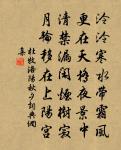 泠泠寒水帶霜風
更在天橋夜景中
清禁漏閑煙樹寂
月輪移在上陽宮
杜牧洛陽秋夕詞典網
集